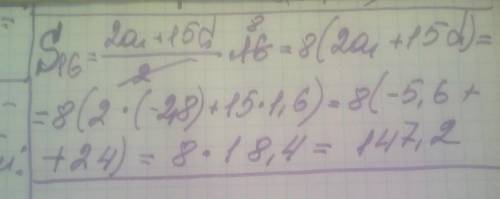 S₁₆ = (2a₁ + 15d)/2 · 16 8 = 8(2a₁ + 15d) =
= 8(2 · (-28) + 15 · 1,6) = 8(-5,6 +
+ 24) = 8 · 18,4 = 147,2